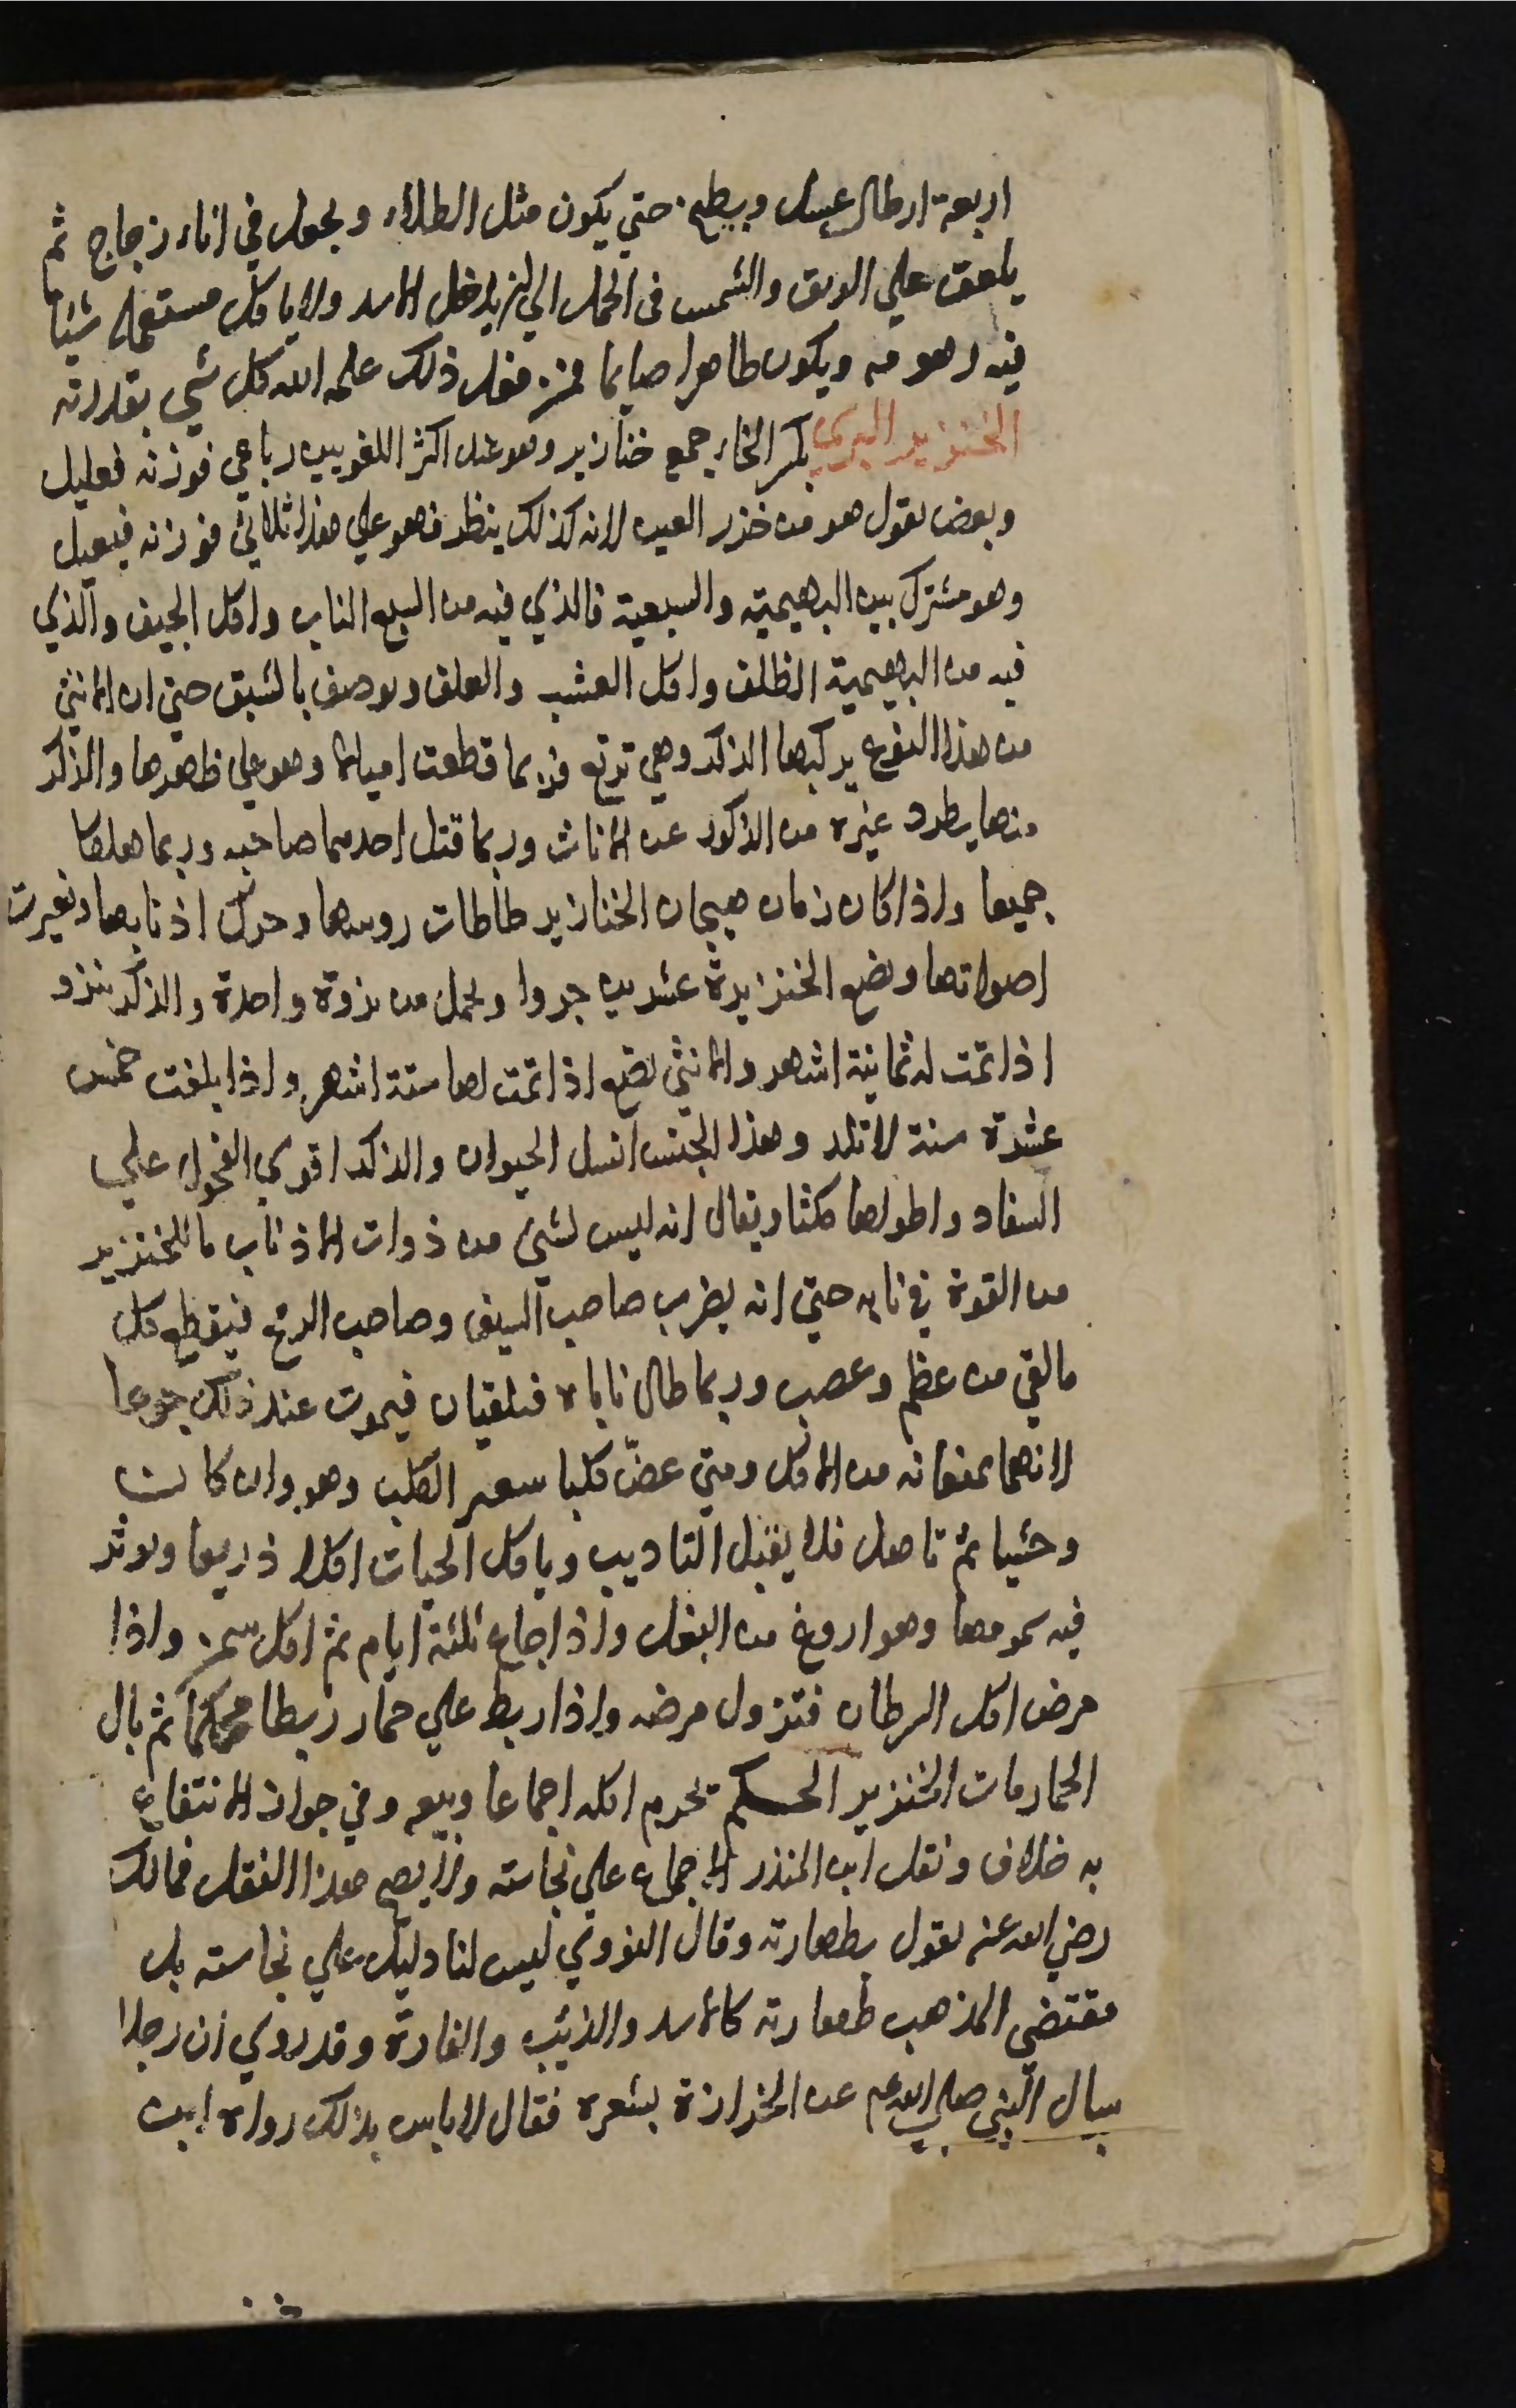 اربعة ارطال عسل ويطبخ حتي يكون مثل الطلاء ويجعل في اناء زجاج ثم
يلعق علي الريق والشمس في الحمل الي ان يدخل الاسد ولا ياكل مستعمله شيا
فيه زهومة ويكون طاهرا صايما فمن فعل ذلك علمه الله كل شي بقدرته
الخنزير البري بكسر الخاء جمع خنازير وهو عند اكثر اللغويين رباعي فوزنه فعليل
وبعض يقول هو من خزر العين لانه كذلك ينظر فهو علي هذا ثلاثي فوزنه فيعيل
وهو مشترك بين البهيمية والسبعية فالذي فيه من السبع الناب واكل الجيف والذي
فيه من البهيمية الظلف واكل العشب والعلف ويوصف بالشبق حتي ان الانثي
من هذا النوع يركبها الذكر وهي ترتع فربما قطعت اميالا وهو علي ظهرها والذكر
منها يطرد غيره من الذكور عن الاناث وربما قتل احدهما صاحبه وربما هلكا
جميعا واذا كان زمان هيجان الخنازير طاطات روسها وحركت اذنابها وتغيرت
اصواتها وتضع الخنزيرة عشرين جروا وتحمل من نزوة واحدة والذكر ينزو
اذا تمت له ثمانية اشهر والانثي تضع اذا تمت لها ستة اشهر واذا بلغت خمس
عشرة سنة لا تلد وهذا الجنس انسل الحيوان والذكر اقوي الفحول علي
السفاد واطولها مكثا ويقال انه ليس لشي من ذوات الاذناب ما للخنزير
من القوة في نابه حتي انه يضرب صاحب السيف وصاحب الرمح فيقطع كل
ما لقي من عظم وعصب وربما طال ناباه فيلتقيان فيموت عند ذلك جوعا
لانهما يمنعانه من الاكل ومتي عضّ كلبا سعر الكلب وهو وان كانت
وحشيا ثم تاهل فلا يقبل التاديب وياكل الحيات اكلا ذريعا ويوثر
فيه سمومها وهو اروغ من الثعلب واذا جاع ثلثة ايام ثم اكل سمن واذا
مرض اكل السرطان فتزول مرضه واذا ربط علي حمار ربطا محكما ثم بال
الحمار مات الخنزير الحكم تحرم اكله اجماعا وبيعه وفي جواز الانتفاع
به خلاف ونقل ابن المنذر الاجماع علي نجاسته ولا يصح هذا النقل فمالك
رضي الله عنه يقول بطهارته وقال النووي ليس لنا دليل علي نجاسته بل
مقتضي المذهب طهارته كالاسد والذئب والفارة وقد روي ان رجلا
سال النبي صلي الله عليه عن الخرازة بشعره فقال لا باس بذلك رواه ابن